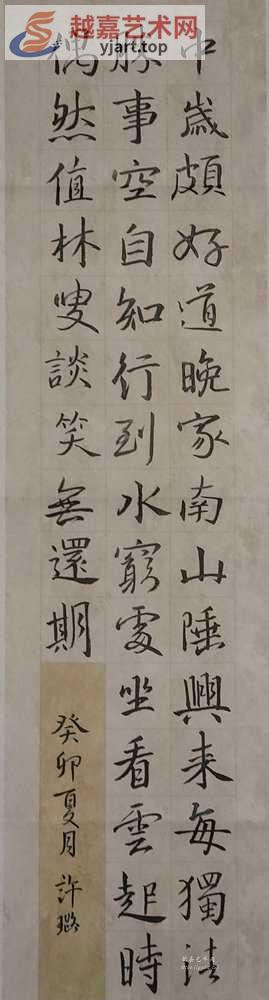 越嘉艺术网
yjart.top
中歲頗好道晚家南山陲興来每獨往
勝事空自知行到水窮處坐看雲起時
偶然值林叟談笑無還期
癸卯夏月 許璐